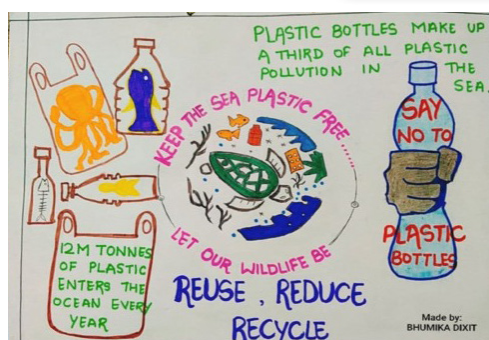 PLASTIC BOTTLES MAKE UP
A THIRD OF ALL PLASTIC
POLLUTION IN THE
SEA.
KEEP THE SEA PLASTIC FREE......
LET OUR WILDLIFE BE
SAY
NO TO
PLASTIC
BOTTLES
12M TONNES
OF PLASTIC
ENTERS THE
OCEAN EVERY
YEAR
REUSE, REDUCE
RECYCLE
Made by:
BHUMIKA DIXIT